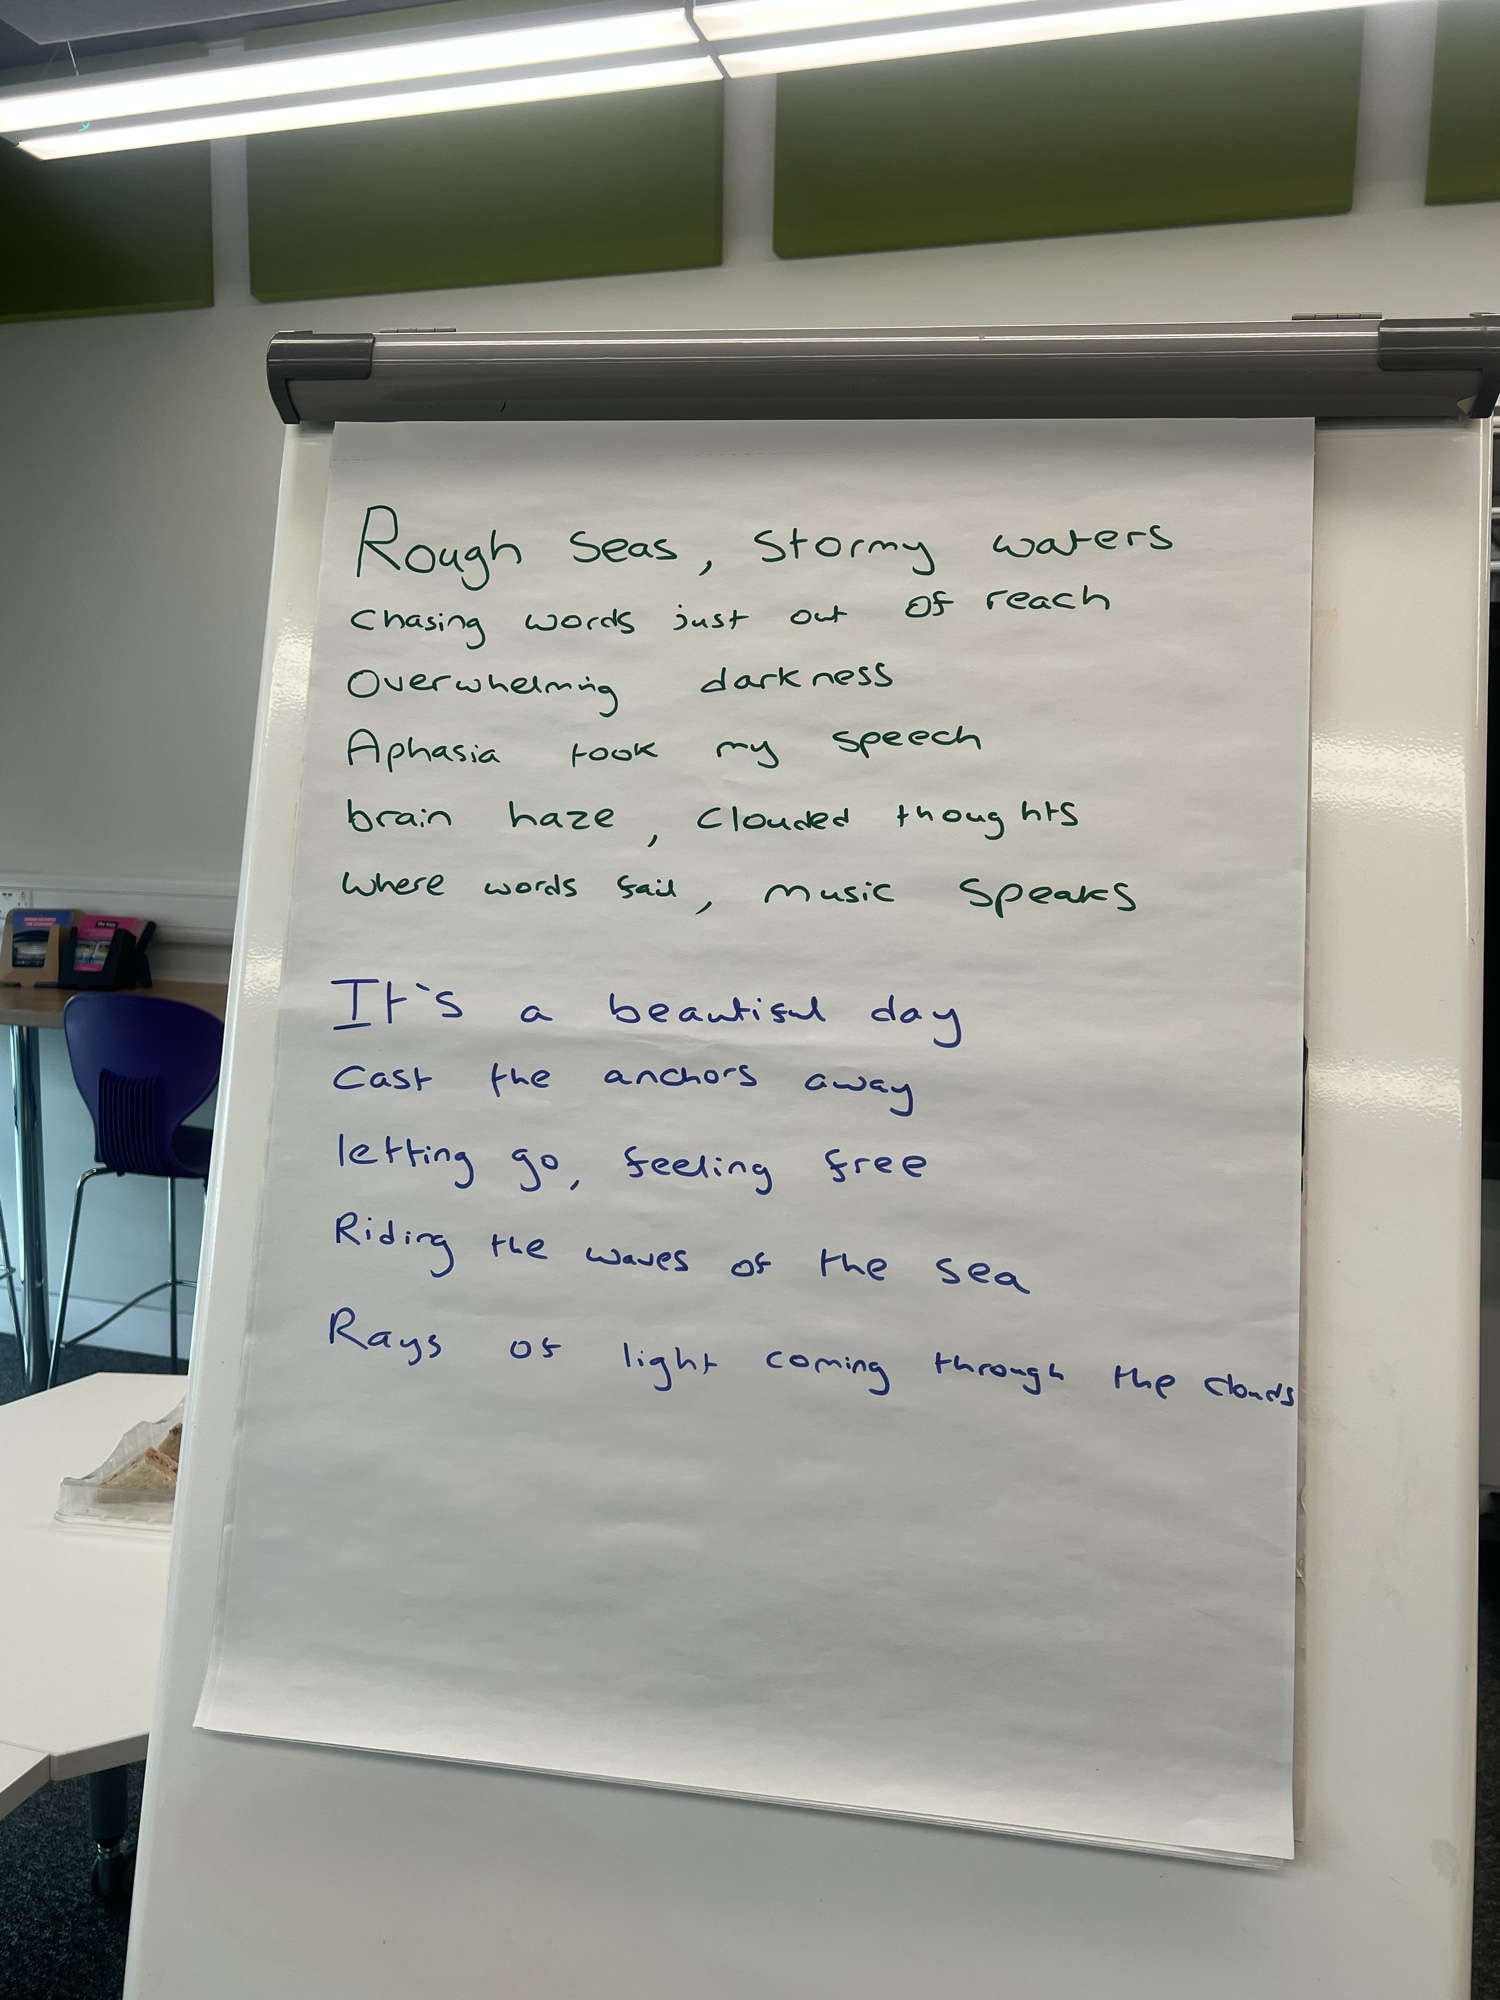 Rough seas, stormy waters
Chasing words just out of reach
Overwhelming darkness
Aphasia took my speech
brain haze, clouded thoughts
Where words fail, music speaks
It's a beautiful day
Cast the anchors away
letting go, feeling free
Riding the waves of the sea
Rays of light coming through the clouds